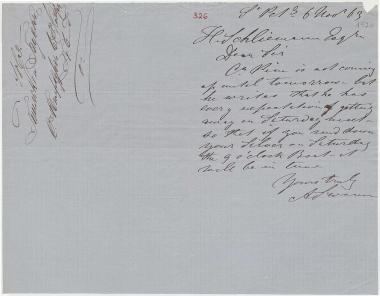 326
St Petb. 6 Nov. 63
H. Schliemann Esqre
Dear Sir
Cn Pim is not coming
up until tomorrow but
he writes that he has
every expectation of getting
away on Saturday next
so that if you send down
your Silver on Saturday
the 9 o'clock Boat it
will be in time
Yours truly